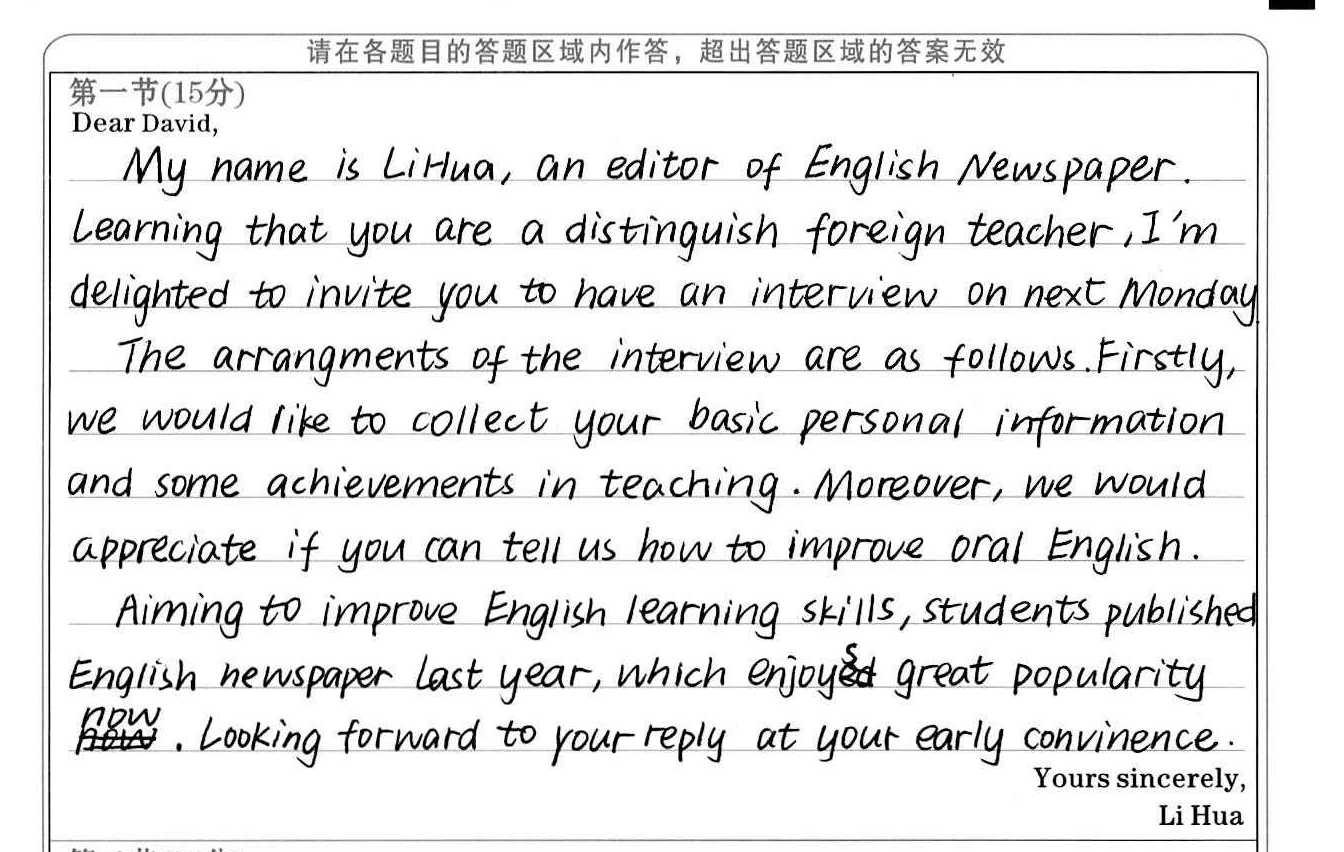 请在各题目的答题区域内作答，超出答题区域的答案无效
第一节(15分)
Dear David,
My name is LiHua, an editor of English Newspaper.
Learning that you are a distinguish foreign teacher, I'm
delighted to invite you to have an interview on next Monday
The arrangments of the interview are as follows. Firstly,
we would like to collect your basic personal information
and some achievements in teaching. Moreover, we would
appreciate if you can tell us how to improve oral English.
Aiming to improve English learning skills, students published
English newspaper last year, which enjoys great popularity
now. Looking forward to your reply at your early convinence.
Yours sincerely,
Li Hua